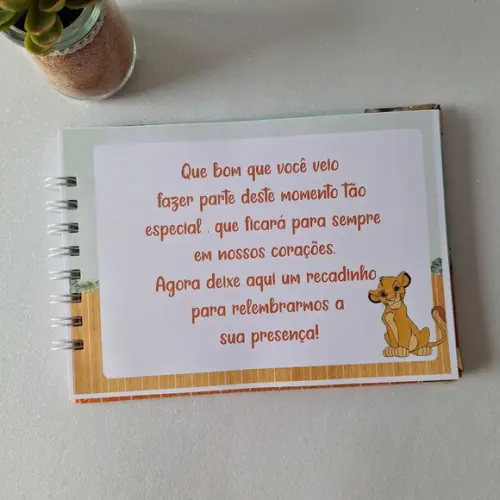 Que bom que você veio
fazer parte deste momento tão
especial , que ficará para sempre
em nossos corações.
Agora deixe aqui um recadinho
para relembrarmos a
sua presença!